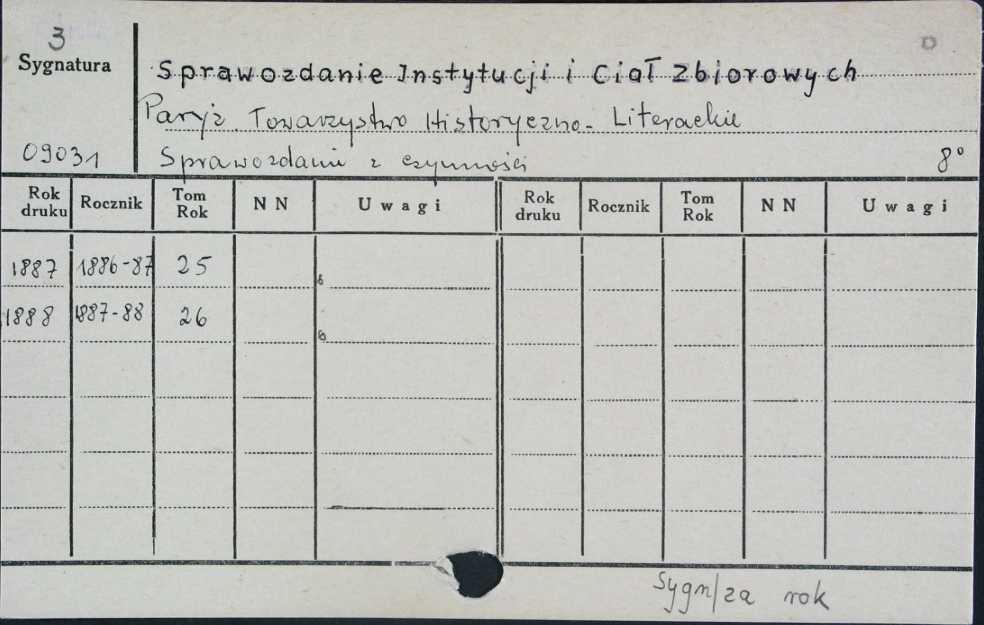 3
Sygnatura
Sprawozdanie Instytucji i Ciał Zbiorowych
Paryż. Towarzystwo Historyczno-Literackie
09031
Sprawozdanie z czynności 8°
Rok druku Rocznik Tom Rok NN Uwagi Rok druku Rocznik Tom Rok NN Uwagi
1887 1886-87 25
1888 1887-88 26
Sygn/za rok